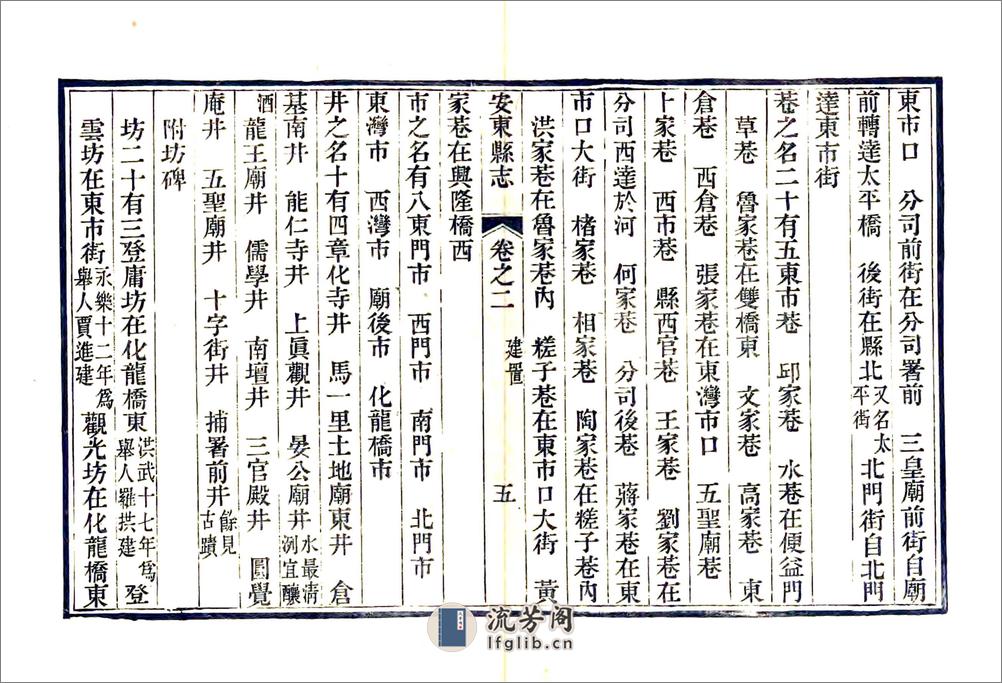 東市口　分司前街在分司署前　三皇廟前街自廟
前轉達太平橋　後街在縣北又名太平街　北門街自北門
達東市街
巷之名二十有五東市巷　邱家巷　水巷在便益門
草巷　魯家巷在雙橋東　文家巷　高家巷　東
倉巷　西倉巷　張家巷在東灣市口　五聖廟巷
卜家巷　西市巷　縣西官巷　王家巷　劉家巷在
分司西達於河　何家巷　分司後巷　蔣家巷在東
市口大街　楮家巷　相家巷　陶家巷在糍子巷內
洪家巷在魯家巷內　糍子巷在東市口大街　黃
安東縣志　卷之二　建置　五
家巷在興隆橋西
市之名有八東門市　西門市　南門市　北門市
東灣市　西灣市　廟後市　化龍橋市
井之名十有四章化寺井　馬一里土地廟東井　倉
基南井　能仁寺井　上眞觀井　晏公廟井水最清洌宜釀
酒　龍王廟井　儒學井　南壇井　三官殿井　圓覺
庵井　五聖廟井　十字街井　捕署前井餘見古蹟
附坊碑
坊二十有三登庸坊在化龍橋東洪武十七年爲舉人羅拱建　登
雲坊在東市街永樂十二年爲舉人賈進建　觀光坊在化龍橋東
流芳阁
lfglib.cn